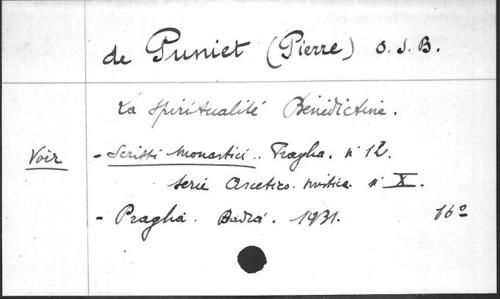 de Puniet (Pierre) O. S. B.
La Spiritualité Bénédictine.
Voir - Scritti monastici .. Praglia. n° 12.
Serie Ascetico. mistica. n° X.
- Praglia. Badia. 1931. 16°